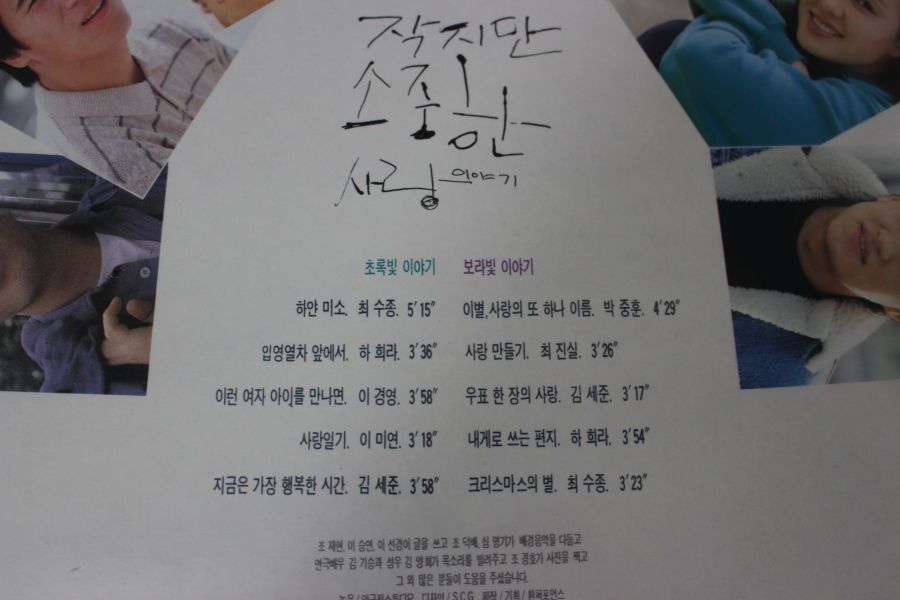 작지만
소중한
사랑이야기
초록빛 이야기
하얀 미소. 최 수종. 5′15″
입영열차 앞에서. 하 희라. 3′36″
이런 여자 아이를 만나면. 이 경영. 3′58″
사랑일기. 이 미연. 3′18″
지금은 가장 행복한 시간. 김 세준. 3′58″
보라빛 이야기
이별,사랑의 또 하나 이름. 박 중훈. 4′29″
사랑 만들기. 최 진실. 3′26″
우표 한 장의 사랑. 김 세준. 3′17″
내게로 쓰는 편지. 하 희라. 3′54″
크리스마스의 별. 최 수종. 3′23″
조 재현, 이 승연, 이 선경이 글을 쓰고 조 덕배, 심 명기가 배경음악을 다듬고
연극배우 김 기승과 성우 김 양희가 목소리를 빌려주고 조 경호가 사진을 찍고
그 외 많은 분들이 도움을 주셨습니다.
녹음 / 한국전스튜디오 디자인 / S.C.G. 제작 / 기획 / 한국포먼스